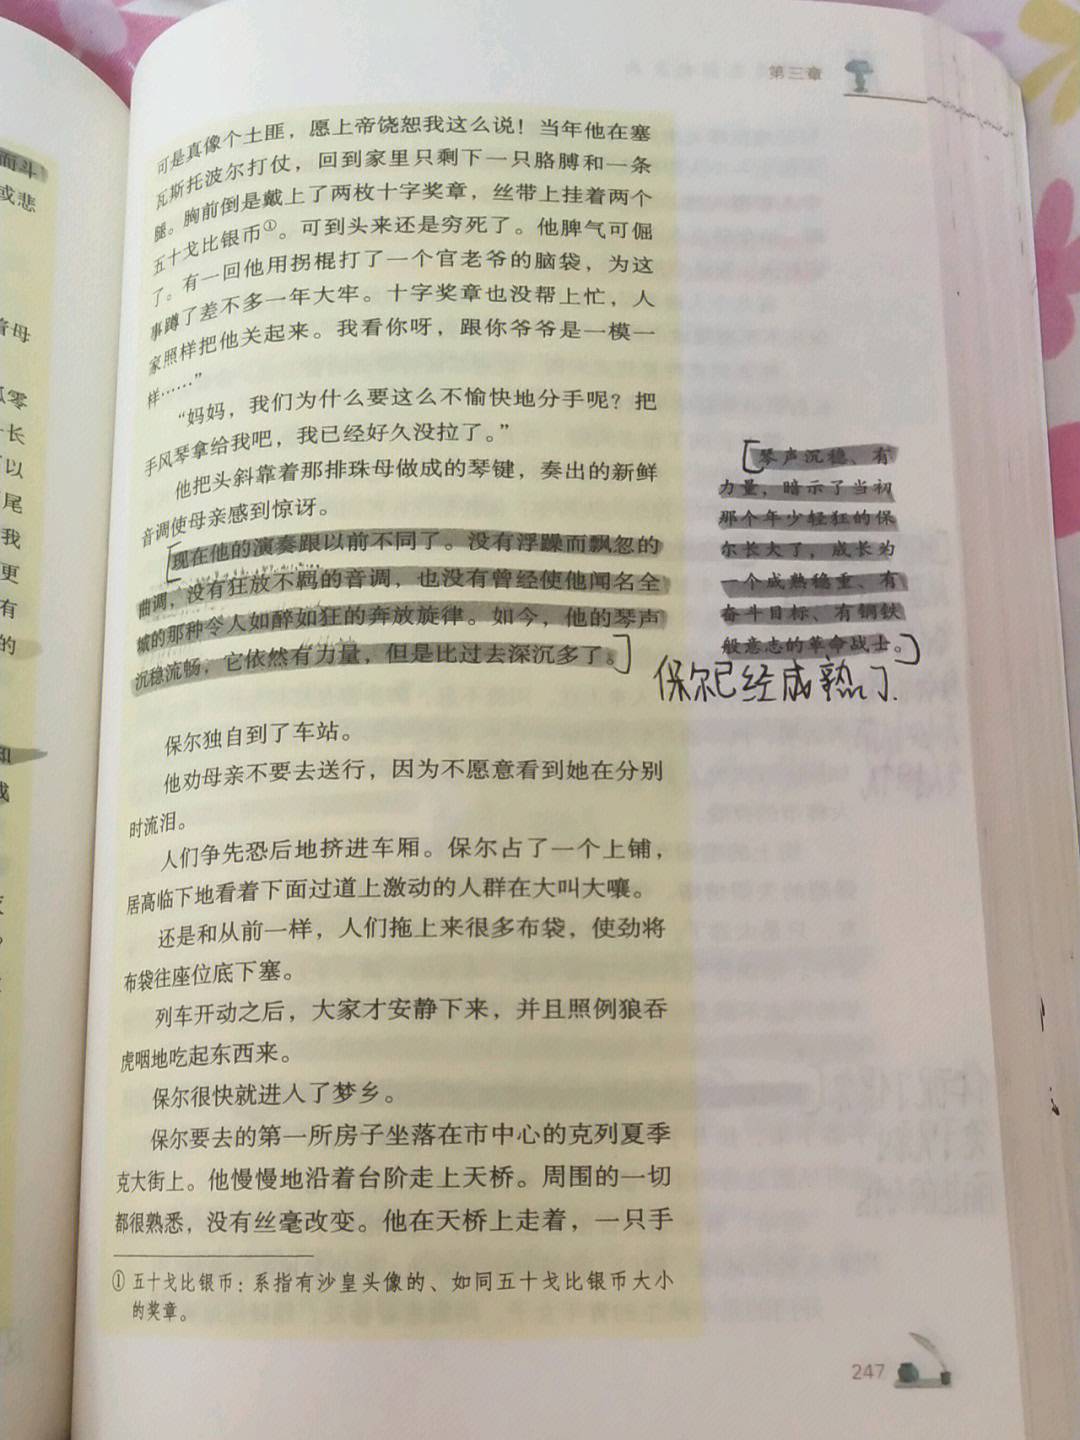 第三章
可是真像个土匪，愿上帝饶恕我这么说！当年他在塞
瓦斯托波尔打仗，回到家里只剩下一只胳膊和一条
腿。胸前倒是戴上了两枚十字奖章，丝带上挂着两个
五十戈比银币①。可到头来还是穷死了。他脾气可倔
了。有一回他用拐棍打了一个官老爷的脑袋，为这
事蹲了差不多一年大牢。十字奖章也没帮上忙，人
家照样把他关起来。我看你呀，跟你爷爷是一模一
样……”
“妈妈，我们为什么要这么不愉快地分手呢？把
手风琴拿给我吧，我已经好久没拉了。”
他把头斜靠着那排珠母做成的琴键，奏出的新鲜
音调使母亲感到惊讶。
现在他的演奏跟以前不同了。没有浮躁而飘忽的
曲调，没有狂放不羁的音调，也没有曾经使他闻名全
城的那种令人如醉如狂的奔放旋律。如今，他的琴声
沉稳流畅，它依然有力量，但是比过去深沉多了。
琴声沉稳、有
力量，暗示了当初
那个年少轻狂的保
尔长大了，成长为
一个成熟稳重、有
奋斗目标、有钢铁
般意志的革命战士。
保尔已经成熟了.
保尔独自到了车站。
他劝母亲不要去送行，因为不愿意看到她在分别
时流泪。
人们争先恐后地挤进车厢。保尔占了一个上铺，
居高临下地看着下面过道上激动的人群在大叫大嚷。
还是和从前一样，人们拖上来很多布袋，使劲将
布袋往座位底下塞。
列车开动之后，大家才安静下来，并且照例狼吞
虎咽地吃起东西来。
保尔很快就进入了梦乡。
保尔要去的第一所房子坐落在市中心的克列夏季
克大街上。他慢慢地沿着台阶走上天桥。周围的一切
都很熟悉，没有丝毫改变。他在天桥上走着，一只手
① 五十戈比银币：系指有沙皇头像的、如同五十戈比银币大小
的奖章。
247